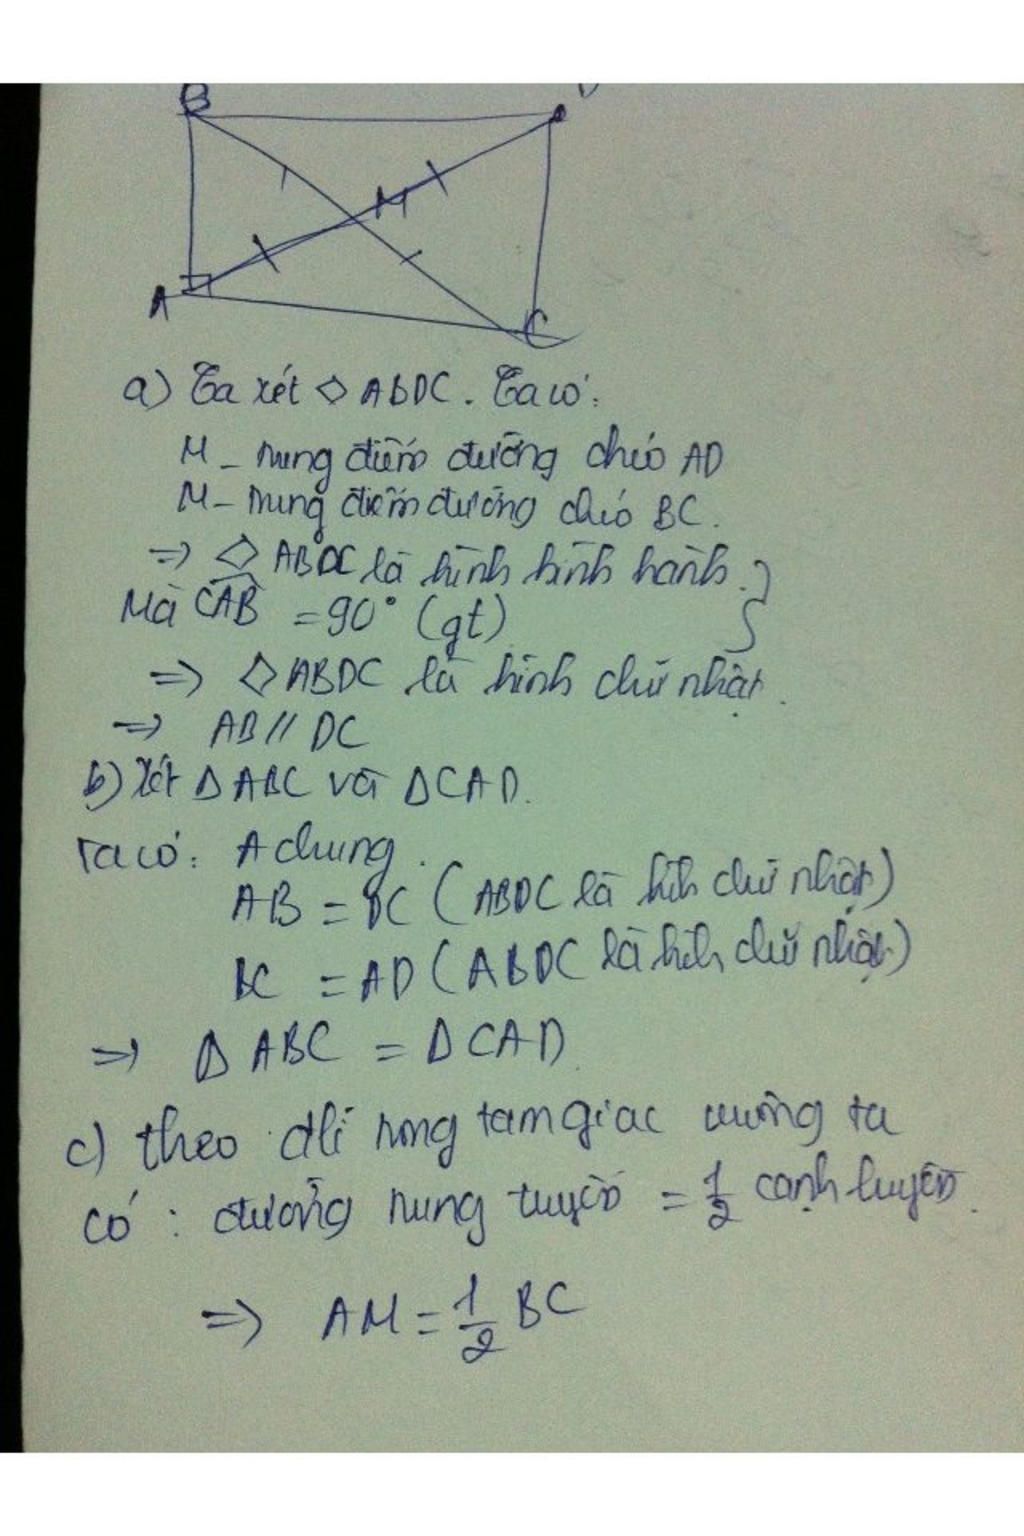 B
M
A
C
a) Ta xét ◇ ABDC. Ta có:
M - trung điểm đường chéo AD
M - trung điểm đường chéo BC.
=> ◇ ABDC là hình bình hành.
Mà CAB = 90° (gt)
=> ◇ ABDC là hình chữ nhật.
=> AB // DC
b) Xét Δ ABC và Δ CAD.
Ta có: A chung.
AB = DC (ABDC là hình chữ nhật)
BC = AD (ABDC là hình chữ nhật)
=> Δ ABC = Δ CAD
c) theo đlí trong tam giác vuông ta
có: đường trung tuyến = 1/2 cạnh huyền.
=> AM = 1/2 BC